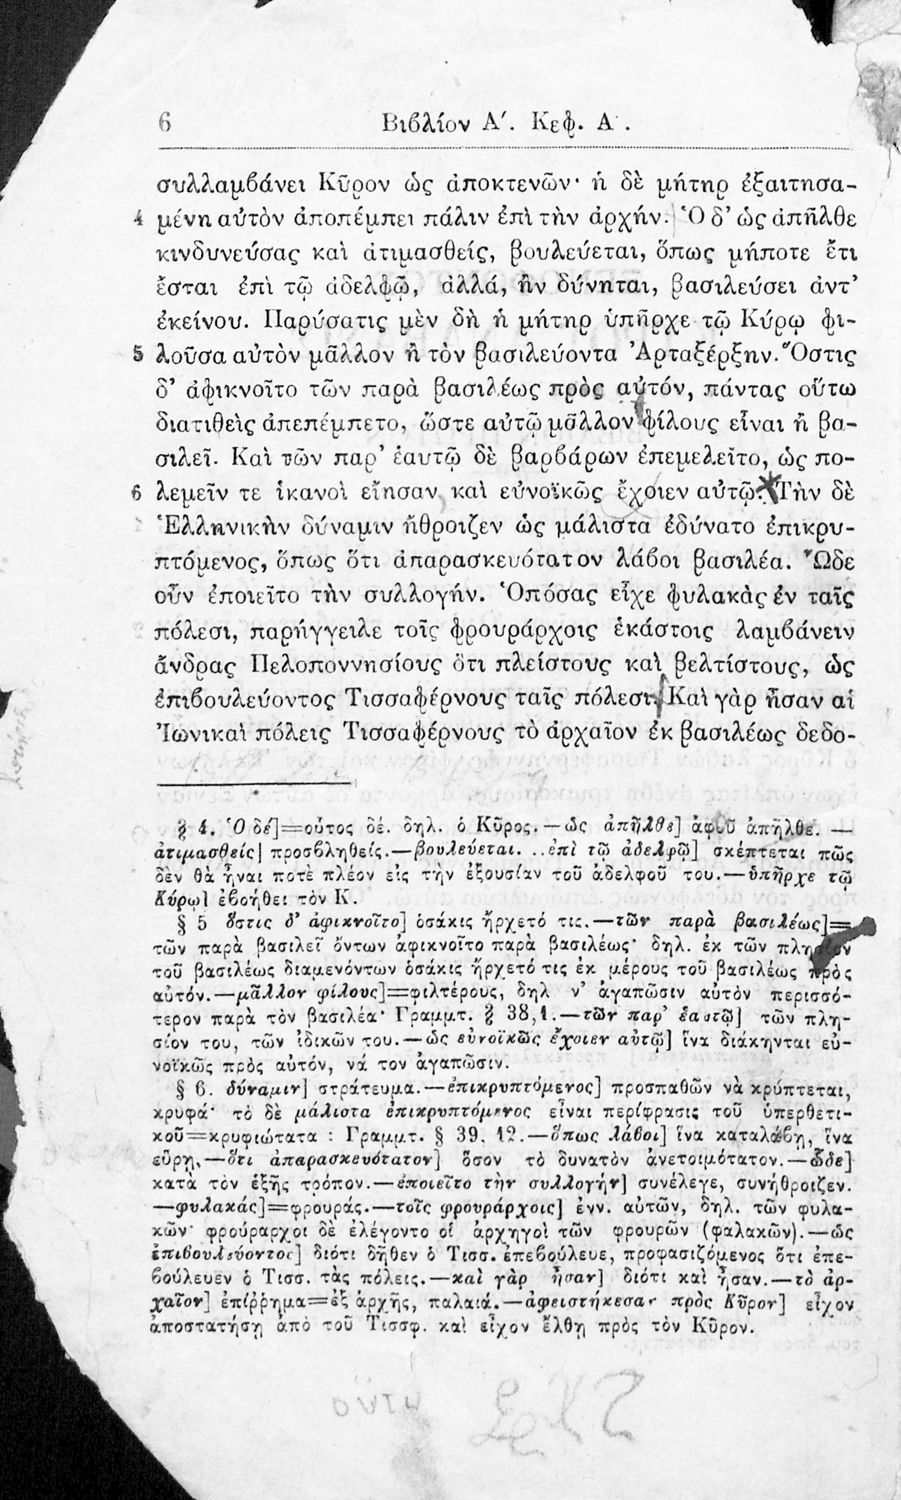 6 Βιβλίον Α΄. Κεφ. Α .
συλλαμβάνει Κῦρον ὡς ἀποκτενῶν· ἡ δὲ μήτηρ ἐξαιτησα-
4 μένη αὐτὸν ἀποπέμπει πάλιν ἐπὶ τὴν ἀρχήν. Ὁ δ’ ὡς ἀπῆλθε
κινδυνεύσας καὶ ἀτιμασθείς, βουλεύεται, ὅπως μήποτε ἔτι
ἔσται ἐπὶ τῷ ἀδελφῷ, ἀλλά, ἢν δύνηται, βασιλεύσει ἀντ’
ἐκείνου. Παρύσατις μὲν δὴ ἡ μήτηρ ὑπῆρχε τῷ Κύρῳ φι-
5 λοῦσα αὐτὸν μᾶλλον ἢ τὸν βασιλεύοντα Ἀρταξέρξην. Ὅστις
δ’ ἀφικνοῖτο τῶν παρὰ βασιλέως πρὸς αὐτόν, πάντας οὕτω
διατιθεὶς ἀπεπέμπετο, ὥστε αὐτῷ μᾶλλον φίλους εἶναι ἢ βα-
σιλεῖ. Καὶ τῶν παρ’ ἑαυτῷ δὲ βαρβάρων ἐπεμελεῖτο, ὡς πο-
6 λεμεῖν τε ἱκανοὶ εἴησαν καὶ εὐνοϊκῶς ἔχοιεν αὐτῷ. Τὴν δὲ
Ἑλληνικὴν δύναμιν ἤθροιζεν ὡς μάλιστα ἐδύνατο ἐπικρυ-
πτόμενος, ὅπως ὅτι ἀπαρασκευότατον λάβοι βασιλέα. Ὧδε
οὖν ἐποιεῖτο τὴν συλλογήν. Ὁπόσας εἶχε φυλακὰς ἐν ταῖς
πόλεσι, παρήγγειλε τοῖς φρουράρχοις ἑκάστοις λαμβάνειν
ἄνδρας Πελοποννησίους ὅτι πλείστους καὶ βελτίστους, ὡς
ἐπιβουλεύοντος Τισσαφέρνους ταῖς πόλεσι. Καὶ γὰρ ἦσαν αἱ
Ἰωνικαὶ πόλεις Τισσαφέρνους τὸ ἀρχαῖον ἐκ βασιλέως δεδο-
§ 4. Ὁ δέ]=οὗτος δέ. δηλ. ὁ Κῦρος.—ὡς ἀπῆλθε] ἀφοῦ ἀπῆλθε. —
ἀτιμασθείς] προσβληθείς.—βουλεύεται. ..ἐπὶ τῷ ἀδελφῷ] σκέπτεται πῶς
δὲν θὰ ἦναι ποτὲ πλέον εἰς τὴν ἐξουσίαν τοῦ ἀδελφοῦ του.—ὑπῆρχε τῷ
Κύρῳ] ἐβοήθει τὸν Κ.
§ 5 ὅστις δ’ ἀφικνοῖτο] ὁσάκις ἤρχετό τις.—τῶν παρὰ βασιλέως]=
τῶν παρὰ βασιλεῖ ὄντων ἀφικνοῖτο παρὰ βασιλέως· δηλ. ἐκ τῶν πλησίον
τοῦ βασιλέως διαμενόντων ὁσάκις ἤρχετό τις ἐκ μέρους τοῦ βασιλέως πρὸς
αὐτόν.—μᾶλλον φίλους]=φιλτέρους, δηλ ν’ ἀγαπῶσιν αὐτὸν περισσό-
τερον παρὰ τὸν βασιλέα· Γραμμτ. § 38,1.—τῶν παρ’ ἑαυτῷ] τῶν πλη-
σίον του, τῶν ἰδικῶν του.—ὡς εὐνοϊκῶς ἔχοιεν αὐτῷ] ἵνα διάκηνται εὐ-
νοϊκῶς πρὸς αὐτόν, νά τον ἀγαπῶσιν.
§ 6. δύναμιν] στράτευμα.—ἐπικρυπτόμενος] προσπαθῶν νὰ κρύπτεται,
κρυφά· τὸ δὲ μάλιστα ἐπικρυπτόμενος εἶναι περίφρασις τοῦ ὑπερθετι-
κοῦ=κρυφιώτατα : Γραμμτ. § 39, 12.—ὅπως λάβοι] ἵνα καταλάβῃ, ἵνα
εὕρῃ,—ὅτι ἀπαρασκευότατον] ὅσον τὸ δυνατὸν ἀνετοιμότατον.—ὧδε]
κατὰ τὸν ἑξῆς τρόπον.—ἐποιεῖτο τὴν συλλογήν] συνέλεγε, συνήθροιζεν.
—φυλακάς]=φρουράς.—τοῖς φρουράρχοις] ἐνν. αὐτῶν, δηλ. τῶν φυλα-
κῶν· φρούραρχοι δὲ ἐλέγοντο οἱ ἀρχηγοὶ τῶν φρουρῶν (φαλακῶν).—ὡς
ἐπιβουλεύοντος] διότι δῆθεν ὁ Τισσ. ἐπεβούλευε, προφασιζόμενος ὅτι ἐπε-
βούλευεν ὁ Τισσ. τὰς πόλεις.—καὶ γὰρ ἦσαν] διότι καὶ ἦσαν.—τὸ ἀρ-
χαῖον] ἐπίρρημα=ἐξ ἀρχῆς, παλαιά.—ἀφειστήκεσαν πρὸς Κῦρον] εἶχον
ἀποστατήσῃ ἀπὸ τοῦ Τισσφ. καὶ εἶχον ἔλθῃ πρὸς τὸν Κῦρον.